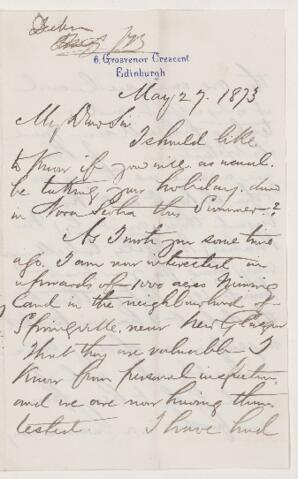 6, Grosvenor Crescent
Edinburgh
May 27. 1873
My Dear Sir
I should like
to know if you will as usual
be taking your holiday
in Nova Scotia this Summer?
As I wrote you some time
ago I am now interested in
upwards of 1000 acres Mining
Land in the neighbourhood of
Springville, near New Glasgow
That they are valuable I
know from personal inspection,
and we are now having them
tested. I have had